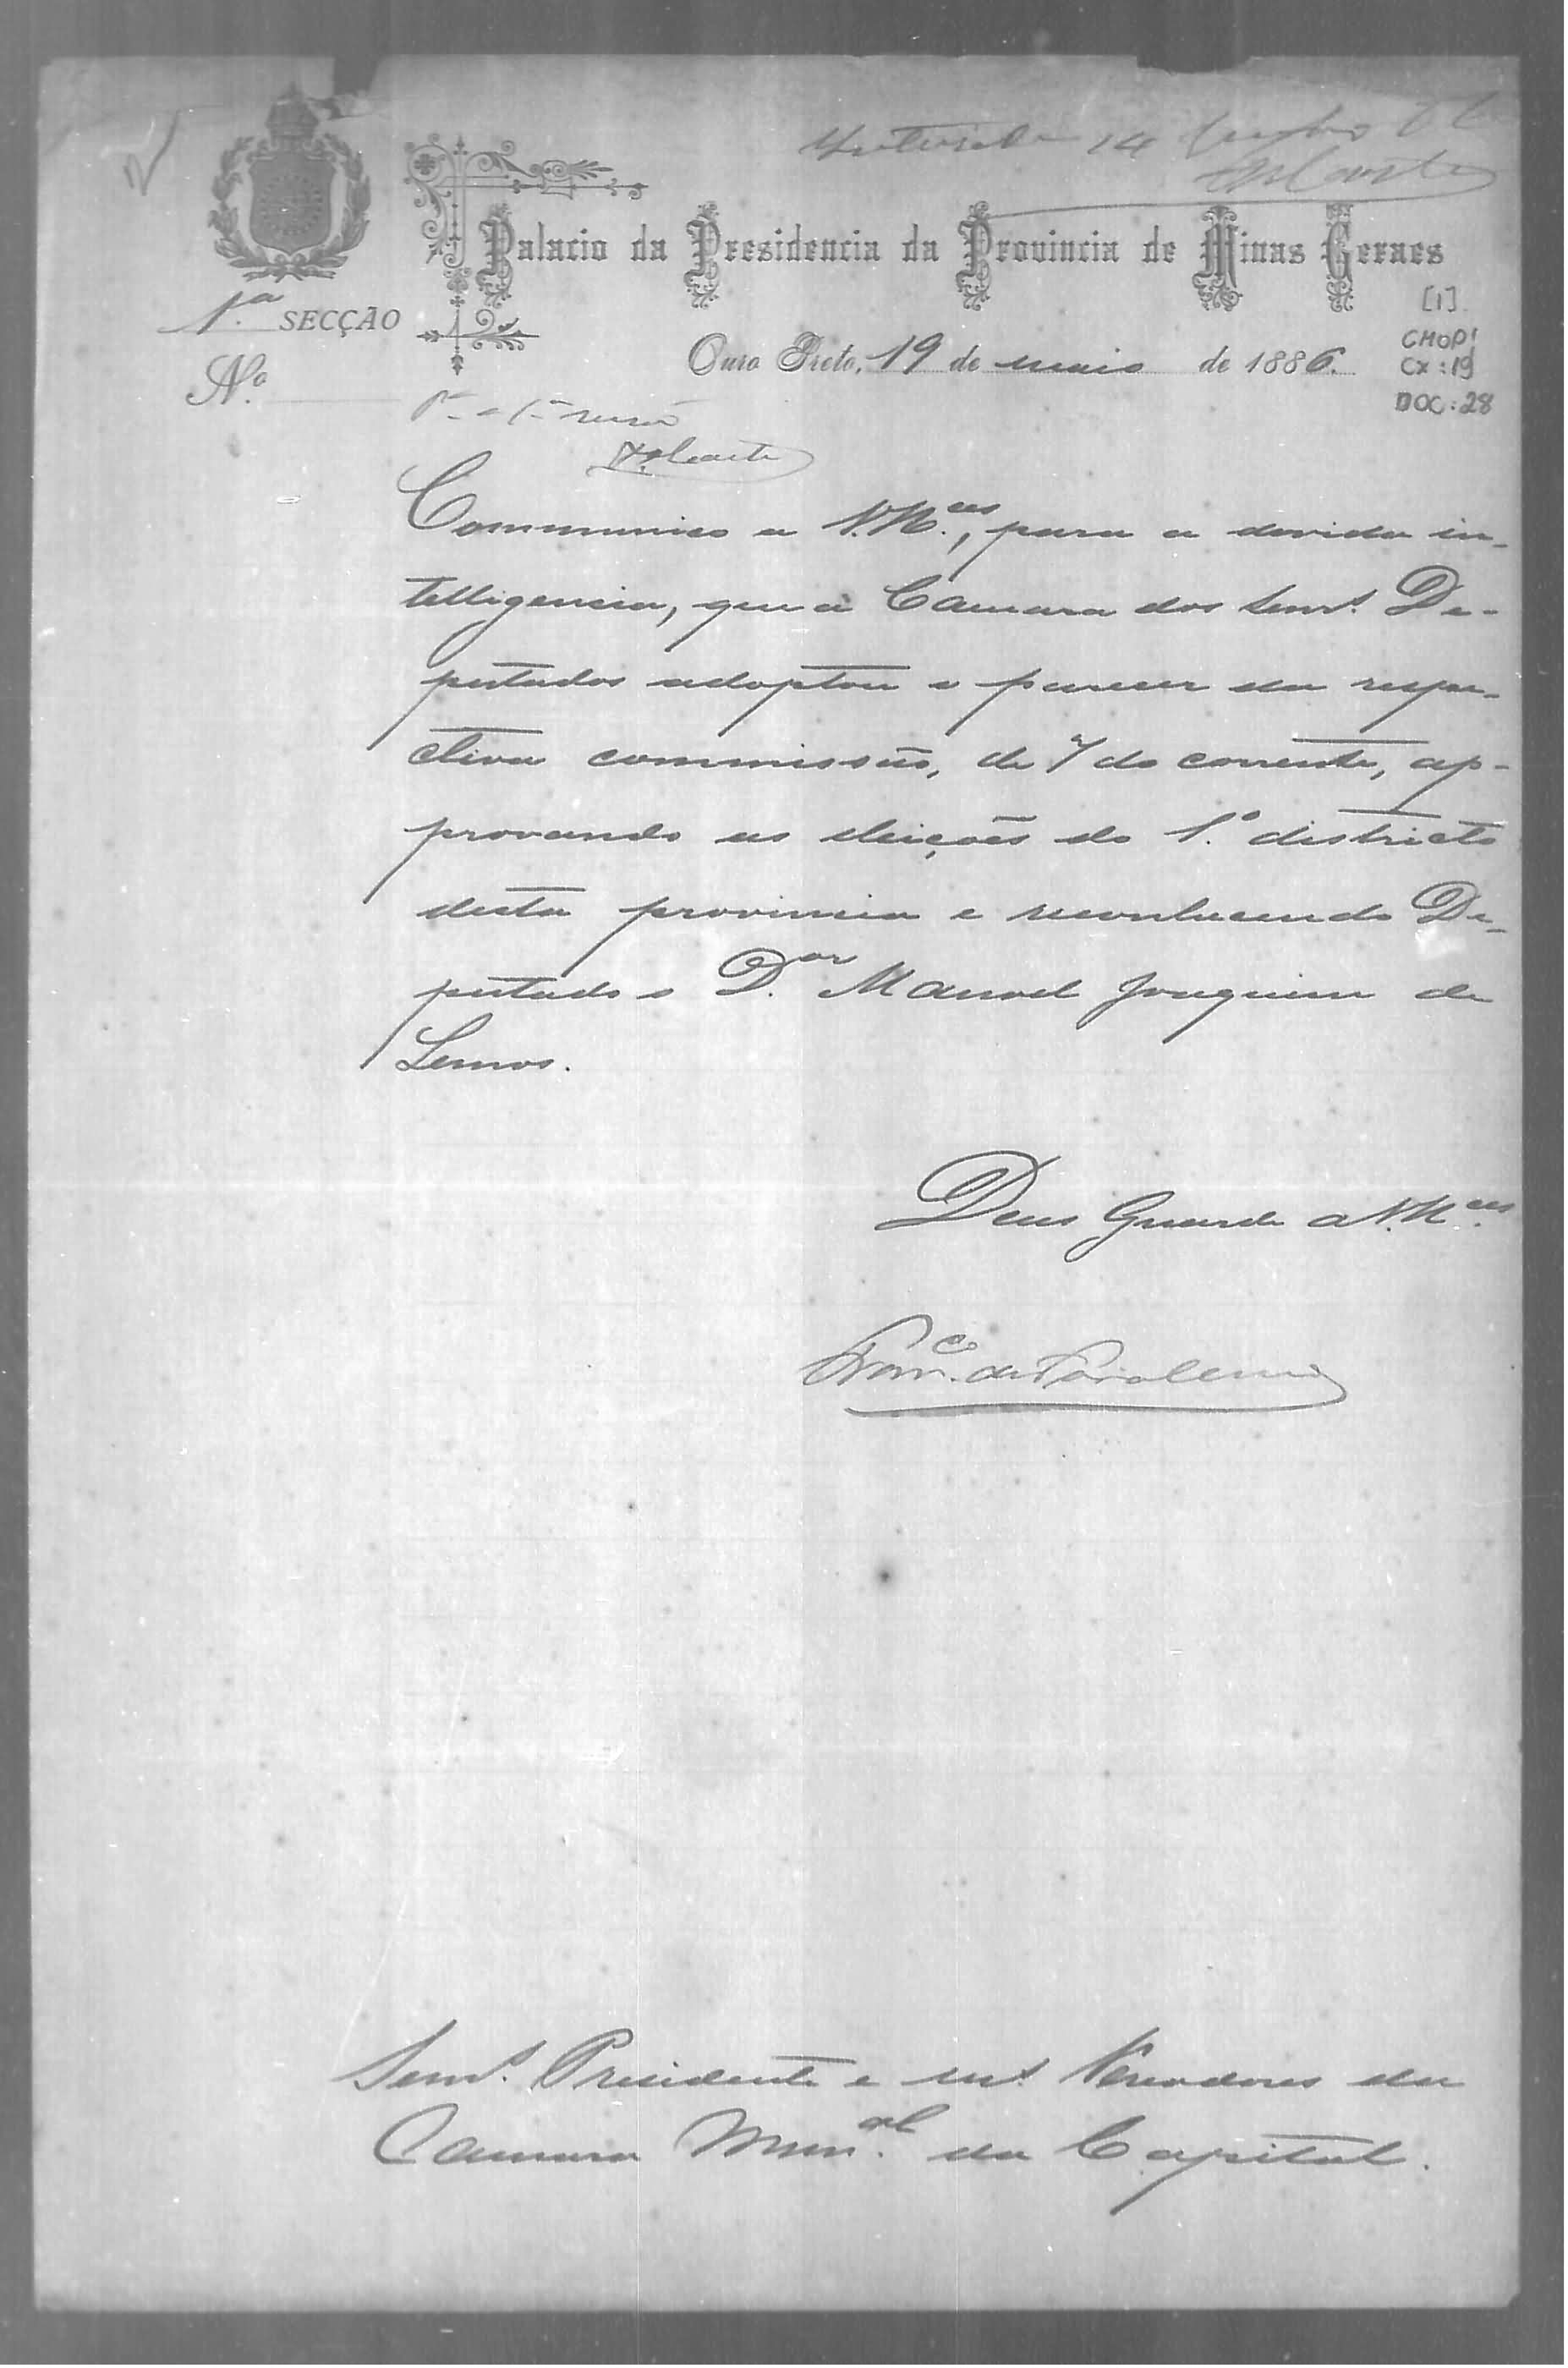 Inteirada 14 Junho 86
Palacio da Presidencia da Provincia de Minas Geraes
[1]
1.ª SECÇÃO
CMOP
Cx: 19
DOC: 28
Ouro Preto, 19 de maio de 1886.
N.º
Communico a V. M.ces, para a devida in-
telligencia, que a Camara dos Senr.s De-
putados adoptou o parecer da respe-
ctiva commissão, de 7 do corrente, ap-
provando as eleições do 1.º districto
desta provincia e reconhecendo De-
putado o D.or Manoel Joaquim de
Lemos.
Deus Guarde a V. M.ces
Fran.co de
Senr.s Presidente e ms. Vereadores da
Camara Mun.al da Capital.